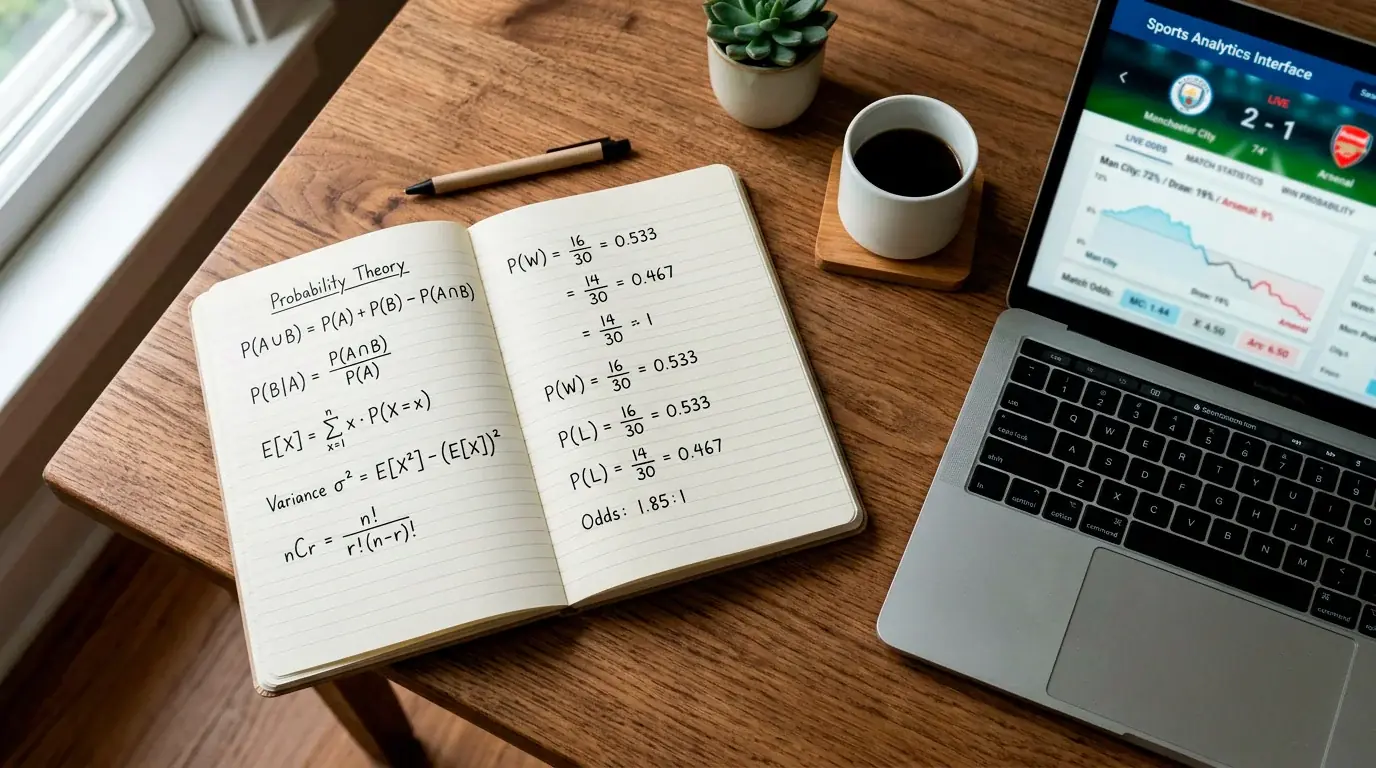 Probability Theory
P(A∪B) = P(A) + P(B) − P(A∩B)
P(B|A) = P(A∩B)/P(A)
E[X] = ∑ₓ₌₁ⁿ x · P(X = x)
Variance σ² = E[X²] − (E[X])²
nCr = n!/r!(n−r)!
P(W) = 16/30 = 0.533
= 14/30 = 0.467
= 14/30 = 1
P(W) = 16/30 = 0.533
P(L) = 16/30 = 0.533
P(L) = 14/30 = 0.467
Odds: 1.85:1
Sports Analytics Interface
LIVE
2 - 1
74'
Manchester City
Arsenal
LIVE ODDS
MATCH STATISTICS
WIN PROBABILITY
Man City: 72% / Draw: 19% / Arsenal: 9%
72%
Man City
Draw: 19%
Arsenal
Match Odds:
MC: 1.44
X: 4.50
Ars: 6.50
Q W E R T Y U I O
A S D F G H J K L
Z X C V B N M
control
option
command
command